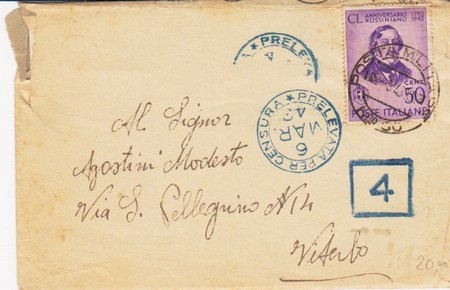 CL ANNIVERSARIO
ROSSINIANO
1792
1942
CENT.
50
POSTE ITALIANE
POSTA MILITARE
PRELEVA
PRELEVATA PER CENSURA
6
MAR.
43
Al Signor
Agostini Modesto
Via S. Pellegrino N 14
Viterbo
4